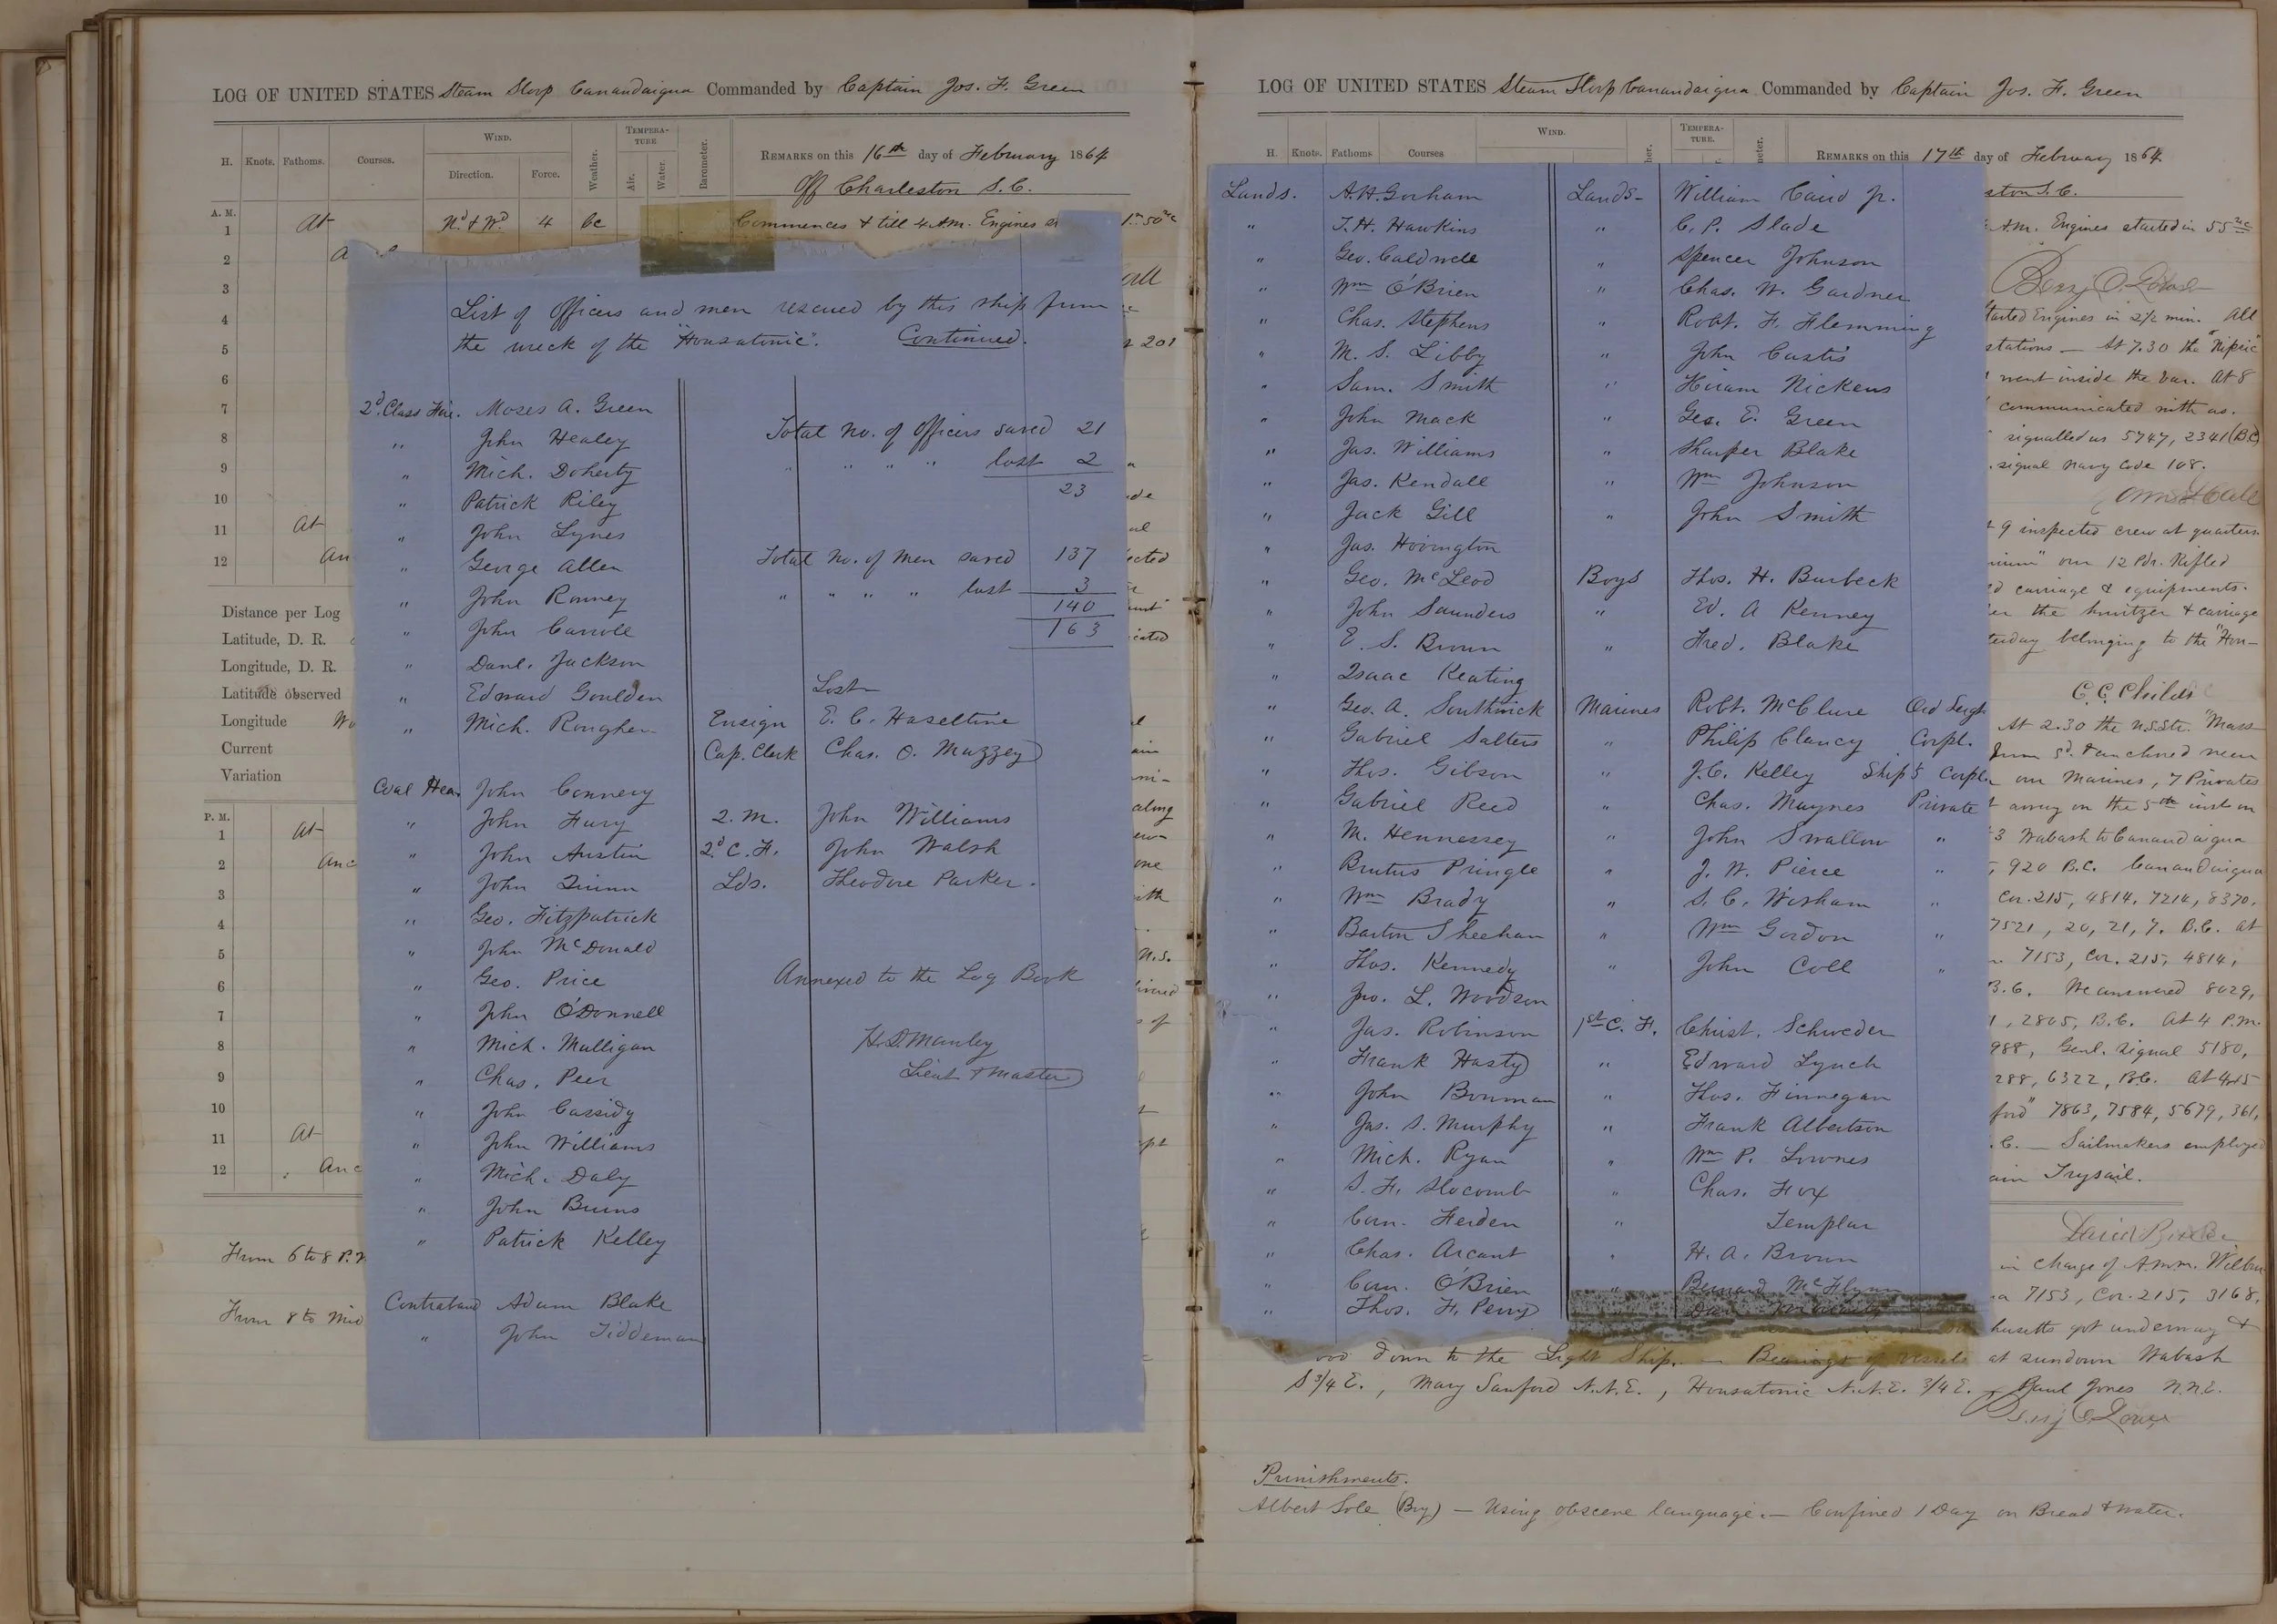 LOG OF UNITED STATES Steam Sloop Canandaigua Commanded by Captain Jos. F. Green
H. Knots. Fathoms. Courses. WIND. Direction. Force. Weather. TEMPERATURE Air. Water. Barometer.
REMARKS on this 16th day of February 1864
Off Charleston S.C.
A. M.
1 At Nd. & Wd. 4 bc Commences & till 4 A.M. Engines 1m 50sec
2
3
4
5
6
7
8
9
10
11 At
12
Distance per Log
Latitude, D. R.
Longitude, D. R.
Latitude observed
Longitude
Current
Variation
P. M.
1 At
2 Anc
3
4
5
6
7
8
9
10
11 At
12 Anc
From 6 to 8 P.M
From 8 to Mid
List of Officers and men rescued by this ship from
the wreck of the "Housatonic". Continued.
2d. Class Fire. Moses A. Green
" John Healey
" Mich. Doherty
" Patrick Riley
" John Lynes
" George Allen
" John Rooney
" John Carroll
" Danl. Jackson
" Edward Goulden
" Mich. Roughen
Coal Hea. John Connery
" John Fury
" John Austin
" John Quinn
" Geo. Fitzpatrick
" John McDonald
" Geo. Price
" John O'Donnell
" Mich. Mulligan
" Chas. Peer
" John Cassidy
" John Williams
" Mich. Daly
" John Burns
" Patrick Kelley
Contraband Adam Blake
" John Tiddeman
Total No. of Officers saved 21
" " " " lost 2
23
Total No. of Men saved 137
" " " " lost 3
140
163
Lost
Ensign E. C. Hazeltine
Cap. Clerk Chas. O. Muzzey
2. M. John Williams
2d. C. F. John Walsh
Lds. Theodore Parker.
Annexed to the Log Book
H. S. Manley
Lieut & Master
LOG OF UNITED STATES Steam Sloop Canandaigua Commanded by Captain Jos. F. Green
H. Knots. Fathoms Courses WIND. TEMPERATURE.
REMARKS on this 17th day of February 1864
Lands. A. H. Gorham
" T. H. Hawkins
" Geo. Caldwell
" Wm O'Brien
" Chas. Stephens
" M. S. Libby
" Sam. Smith
" John Mack
" Jas. Williams
" Jas. Kendall
" Jack Gill
" Jas. Hovington
" Geo. McLeod
" John Saunders
" E. S. Brown
" Isaac Keating
" Geo. A. Southwick
" Gabriel Salters
" Thos. Gibson
" Gabriel Reed
" M. Hennessey
" Brutus Pringle
" Wm Brady
" Barton Sheehan
" Thos. Kennedy
" Jno. L. Woodson
" Jas. Robinson
" Frank Hasty
" John Bowman
" Jas. S. Murphy
" Mich. Ryan
" S. F. Slocomb
" Corn. Herden
" Chas. Arcant
" Corn. O'Brien
" Thos. F. Perry
Lands- William Caird Jr.
" C. P. Slade
" Spencer Johnson
" Chas. W. Gardner
" Robt. F. Flemming
" John Custis
" Hiram Nickens
" Geo. E. Green
" Sharper Blake
" Wm Johnson
" John Smith
Boys Thos. H. Burbeck
" Ed. A Kenney
" Fred. Blake
Marines Robt. McClure Ord Sergt
" Philip Clancy Corpl.
" J. C. Kelley Ship's Corpl
" Chas. Maynes Private
" John Swallow "
" J. W. Pierce "
" S. C. Worham "
" Wm Gordon "
" John Coll "
1st C. F. Christ. Schweder
" Edward Lynch
" Thos. Finnegan
" Frank Albertson
" Wm P. Lownes
" Chas. Fox
" Templar
" H. A. Brown
" Bernard McFlynn
ston S. C.
A.M. Engines started in 55 sec
started Engines in 2½ min. All
stations — At 7.30 the "Nipsic"
went inside the bar. At 8
communicated with us.
signalled us 5747, 2341 (B.C)
signal Navy Code 108.
9 inspected crew at quarters
our 12 Pdr. Rifled
carriage & equipments.
the howitzer & carriage
belonging to the "Hou-
C. C. Childs
At 2.30 the U.S.Str. "Mass
from Sd. & anchored near
our Marines, 7 Privates
away on the 5th inst on
3 Wabash to Canandaigua
, 920 B.C. Canandaigua
Cor. 215, 4814, 7214, 8370,
7521, 20, 21, 7. B.C. At
7153, Cor. 215, 4814,
B.C. We answered 8029,
, 2805, B.C. At 4 P.M.
988, Genl. signal 5180,
288, 6322, B.C. At 4.45
ford" 7863, 7584, 5679, 361,
.C. — Sailmakers employed
Trysail.
in charge of A.M.M. Wilbur
7153, Cor. 215, 3168,
husetts got underway &
down to the Light Ship. — Bearings of vessels at sundown Wabash
S 3/4 E., Mary Sanford N.N.E., Housatonic N.N.E. 3/4 E. Paul Jones N.N.E.
Punishments.
Albert Sole (Boy) — Using obscene language. — Confined 1 Day on Bread & water.